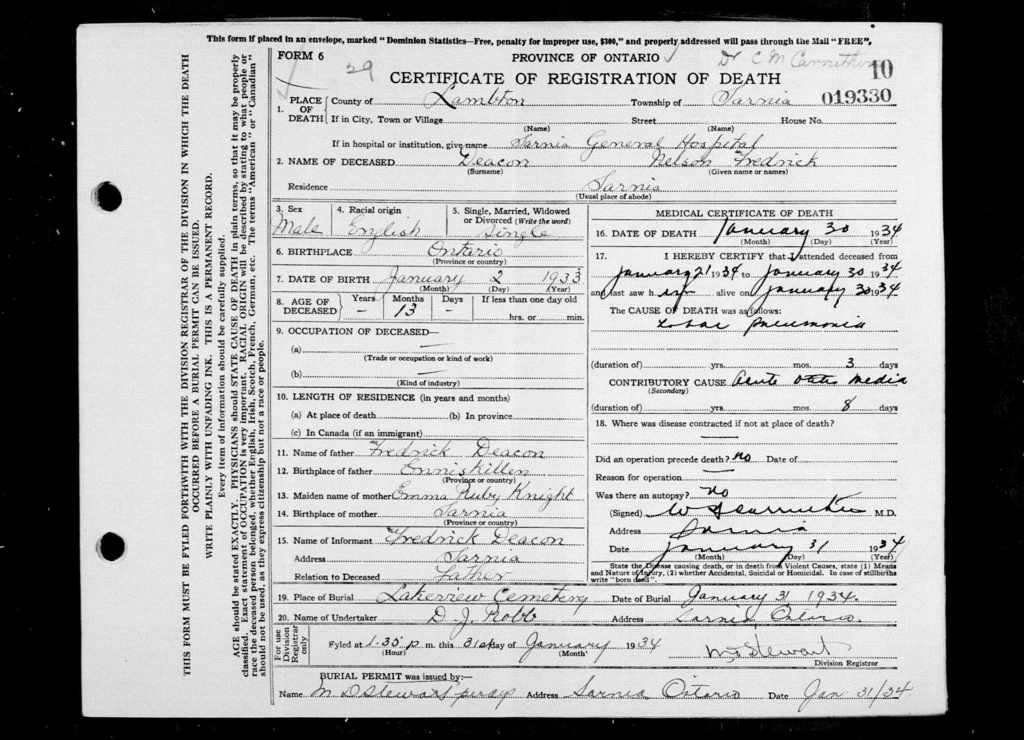 This form if placed in an envelope, marked "Dominion Statistics—Free, penalty for improper use, $300," and property addressed will pass through the Mail "FREE",
FORM 6 PROVINCE OF ONTARIO Dr C M
29 10
CERTIFICATE OF REGISTRATION OF DEATH
019330
1. PLACE OF DEATH County of Lambton Township of Sarnia
If in City, Town or Village Street House No.
(Name) (Name)
If in hospital or institution, give name Sarnia General Hospital
2. NAME OF DECEASED Deacon Nelson Fredrick
(Surname) (Given name or names)
Residence Sarnia
(Usual place of abode)
3. Sex Male
4. Racial origin English
5. Single, Married, Widowed or Divorced (Write the word) Single
6. BIRTHPLACE Ontario
(Province or country)
7. DATE OF BIRTH January 2 1933
(Month) (Day) (Year)
8. AGE OF DECEASED Years Months Days If less than one day old
– 13 – hrs. or min.
9. OCCUPATION OF DECEASED— —
(a)
(Trade or occupation or kind of work)
(b) —
(Kind of industry)
10. LENGTH OF RESIDENCE (in years and months)
(a) At place of death (b) In province
(c) In Canada (if an immigrant)
11. Name of father Fredrick Deacon
12. Birthplace of father Enniskillen
(Province or country)
13. Maiden name of mother Emma Ruby Knight
14. Birthplace of mother Sarnia
(Province or country)
15. Name of Informant Fredrick Deacon
Address Sarnia
Relation to Deceased Father
MEDICAL CERTIFICATE OF DEATH
16. DATE OF DEATH January 30 1934
(Month) (Day) (Year)
17. I HEREBY CERTIFY that I attended deceased from
January 21 1934 to January 30 1934
and last saw him alive on January 30 1934
The CAUSE OF DEATH was as follows:
Lobar Pneumonia
(duration of) yrs. mos. 3 days
CONTRIBUTORY CAUSE Acute Otitis Media
(Secondary)
(duration of) yrs. mos. 8 days
18. Where was disease contracted if not at place of death?
—
Did an operation precede death? No Date of
Reason for operation —
Was there an autopsy? No
(Signed) M.D.
Address Sarnia
Date January 31 1934
(Month) (Day) (Year)
State the Disease causing death, or in death from Violent Causes, state (1) Means
and Nature of Injury, (2) whether Accidental, Suicidal or Homicidal. In case of stillbirths
write "born dead".
19. Place of Burial Lakeview Cemetery Date of Burial January 31 1934.
20. Name of Undertaker D. J. Robb Address Sarnia Ontario.
For use Division Registrar only
Fyled at 1-35 p m. this 31st day of January 1934 Stewart
(Hour) (Month) Division Registrar
BURIAL PERMIT was issued by:—
Name M D Stewart Address Sarnia Ontario Date Jan 31/34
THIS FORM MUST BE FYLED FORTHWITH WITH THE DIVISION REGISTRAR OF THE DIVISION IN WHICH THE DEATH
OCCURRED BEFORE A BURIAL PERMIT CAN BE ISSUED.
WRITE PLAINLY WITH UNFADING INK. THIS IS A PERMANENT RECORD.
Every item of information should be carefully supplied.
AGE should be stated EXACTLY. PHYSICIANS should STATE CAUSE OF DEATH in plain terms, so that it may be properly
classified. Exact statement of OCCUPATION is very important. RACIAL ORIGIN will be described by stating to what people or
race the deceased person belonged, whether English, Irish, Scotch, French, German, etc. The terms "American" or "Canadian"
should not be used, as they express citizenship but not a race or people.